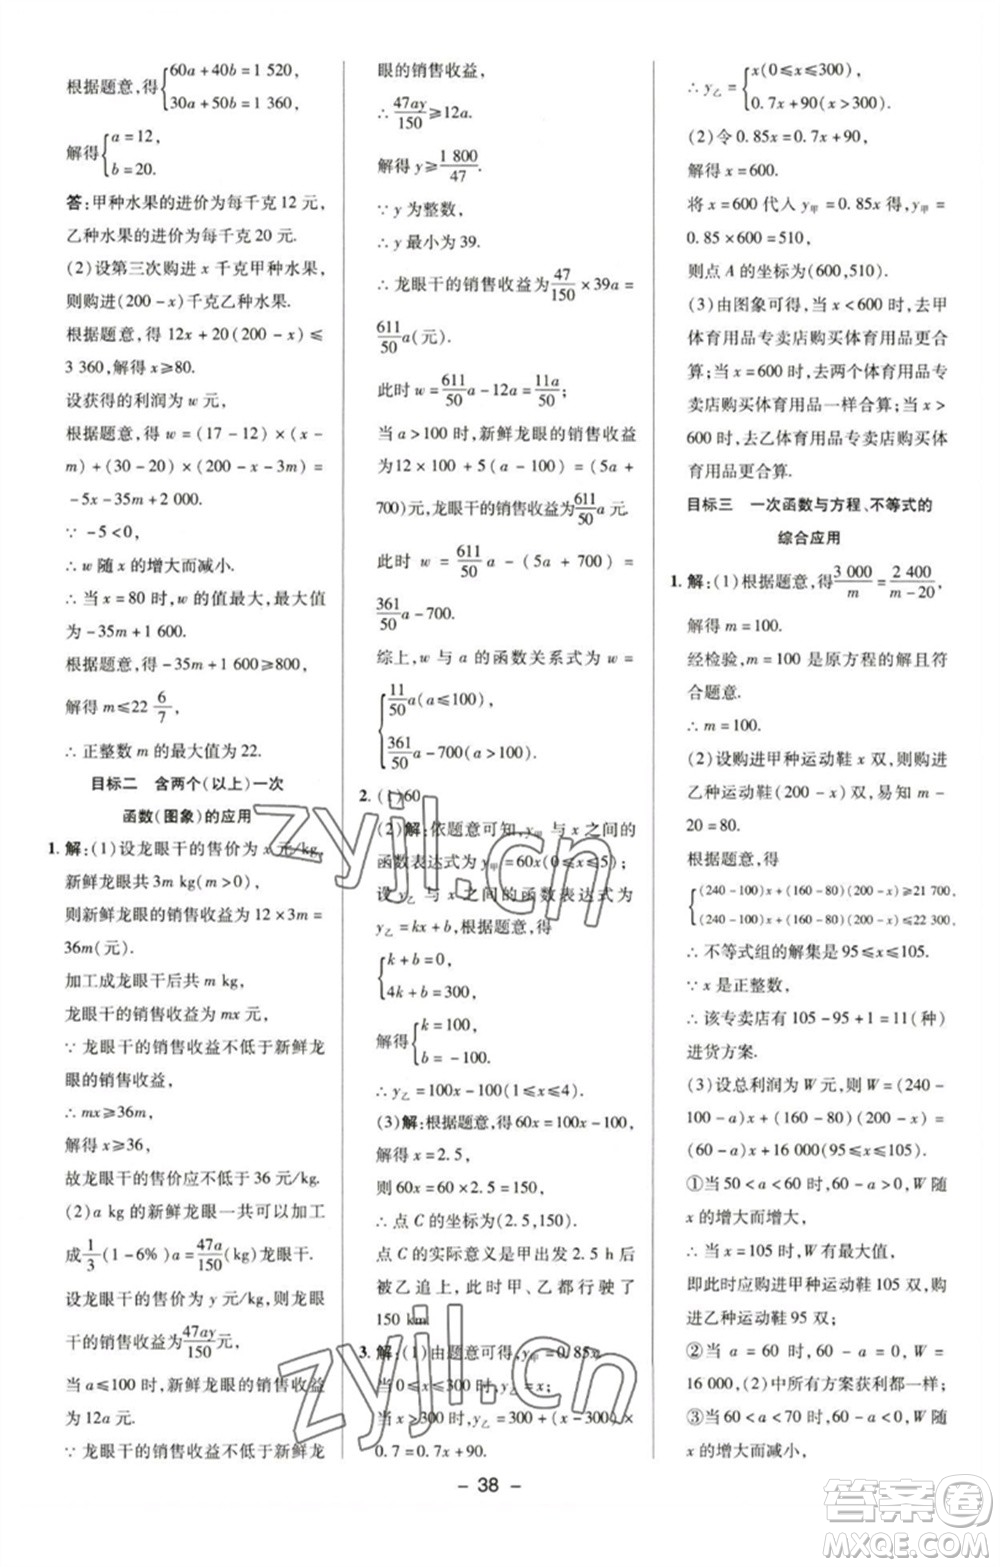 根据题意，得{60a+40b=1 520,
30a+50b=1 360,
解得{a=12,
b=20.
答：甲种水果的进价为每千克 12 元，
乙种水果的进价为每千克 20 元.
(2)设第三次购进 x 千克甲种水果，
则购进(200-x)千克乙种水果.
根据题意，得 12x+20(200-x)≤
3 360,解得 x≥80.
设获得的利润为 w 元，
根据题意，得 w=(17-12)×(x-
m)+(30-20)×(200-x-3m)=
-5x-35m+2 000.
∵ -5<0,
∴ w 随 x 的增大而减小.
∴ 当 x=80 时,w 的值最大，最大值
为-35m+1 600.
根据题意，得-35m+1 600≥800,
解得 m≤22 6/7,
∴ 正整数 m 的最大值为 22.
目标二 含两个(以上)一次
函数(图象)的应用
1. 解：(1)设龙眼干的售价为 x 元/kg,
新鲜龙眼共 3m kg(m>0),
则新鲜龙眼的销售收益为 12×3m=
36m(元).
加工成龙眼干后共 m kg,
龙眼干的销售收益为 mx 元，
∵ 龙眼干的销售收益不低于新鲜龙
眼的销售收益，
∴ mx≥36m,
解得 x≥36,
故龙眼干的售价应不低于 36 元/kg.
(2)a kg 的新鲜龙眼一共可以加工
成1/3(1-6%)a=47a/150(kg)龙眼干.
设龙眼干的售价为 y 元/kg,则龙眼
干的销售收益为47ay/150元，
当 a≤100 时,新鲜龙眼的销售收益
为 12a 元.
∵ 龙眼干的销售收益不低于新鲜龙
眼的销售收益，
∴ 47ay/150≥12a.
解得 y≥1 800/47.
∵ y 为整数，
∴ y 最小为 39.
∴ 龙眼干的销售收益为47/150×39a=
611/50a(元).
此时 w=611/50a-12a=11a/50;
当 a>100 时,新鲜龙眼的销售收益
为12×100+5(a-100)=(5a+
700)元,龙眼干的销售收益为611/50a元.
此时 w=611/50a-(5a+700)=
361/50a-700.
综上,w 与 a 的函数关系式为 w=
{11/50a(a≤100),
361/50a-700(a>100).
2. (1)60
(2)解：依题意可知,y甲 与 x 之间的
函数表达式为 y甲=60x(0≤x≤5);
设 y乙 与 x 之间的函数表达式为
y乙=kx+b,根据题意,得
{k+b=0,
4k+b=300,
解得{k=100,
b=-100.
∴ y乙=100x-100(1≤x≤4).
(3)解：根据题意,得 60x=100x-100,
解得 x=2.5,
则 60x=60×2.5=150,
∴ 点 C 的坐标为(2.5,150).
点 C 的实际意义是甲出发 2.5 h 后
被乙追上，此时甲、乙都行驶了
150 km.
3. 解：(1)由题意可得,y甲=0.85x.
当 0≤x≤300 时,y乙=x;
当 x>300 时,y乙=300+(x-300)×
0.7=0.7x+90.
∴ y乙={x(0≤x≤300),
0.7x+90(x>300).
(2)令 0.85x=0.7x+90,
解得 x=600.
将 x=600 代入 y甲=0.85x,得 y甲=
0.85×600=510,
则点 A 的坐标为(600,510).
(3)由图象可得，当 x<600 时,去甲
体育用品专卖店购买体育用品更合
算；当 x=600 时,去两个体育用品专
卖店购买体育用品一样合算；当 x>
600 时,去乙体育用品专卖店购买体
育用品更合算.
目标三 一次函数与方程、不等式的
综合应用
1. 解：(1)根据题意,得3 000/m=2 400/(m-20),
解得 m=100.
经检验,m=100 是原方程的解且符
合题意.
∴ m=100.
(2)设购进甲种运动鞋 x 双,则购进
乙种运动鞋(200-x)双,易知 m-
20=80.
根据题意,得
{(240-100)x+(160-80)(200-x)≥21 700,
(240-100)x+(160-80)(200-x)≤22 300,
∴ 不等式组的解集是 95≤x≤105.
∵ x 是正整数，
∴ 该专卖店有 105-95+1=11(种)
进货方案.
(3)设总利润为 W 元,则 W=(240-
100-a)x+(160-80)(200-x)=
(60-a)x+16 000(95≤x≤105).
①当 50<a<60 时,60-a>0,W 随
x 的增大而增大，
∴ 当 x=105 时,W 有最大值，
即此时应购进甲种运动鞋 105 双,
购进乙种运动鞋 95 双；
②当 a=60 时,60-a=0,W=
16 000,(2)中所有方案获利都一样；
③当 60<a<70 时,60-a<0,W 随
x 的增大而减小，
- 38 -
zyjl.cn
zyjl.cn
答案圈
MXQE.COM